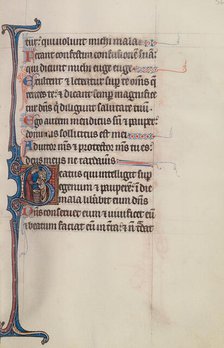 tur: qui volunt michi mala
Ferant confestim confusionem suam:
qui dicunt michi euge euge
Exultent et letentur sup te omnes
querentes te: et dicant semp magnificet
tur dominus qui diligunt salutare tuum
Ego autem mendicus sum et pauper:
dominus sollicitus est mei
Adiutor meus et protector meus tu es:
deus meus ne tardaveris
Beatus qui intelligit sup
egenum et pauperem: in die
mala liberabit eum dominus
Dominus conservet eum et vivificet eum
et beatum faciat eum in terra: et non tradat